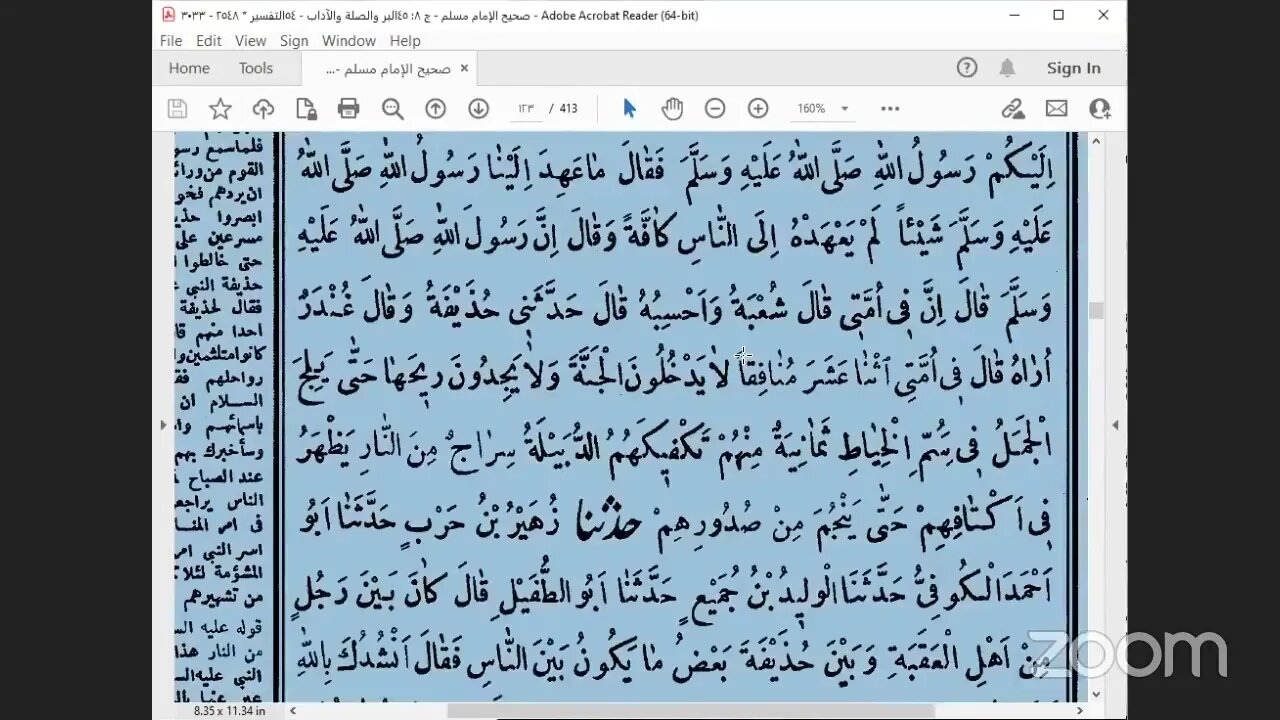 صحيح الإمام مسلم - ج ٨: ٤٥البر والصلة والآداب - ٥٤التفسير * ٢٥٤٨ - ٣٠٣٣ - Adobe Acrobat Reader (64-bit)
File Edit View Sign Window Help
Home Tools صحيح الإمام مسلم -... × Sign In
١٢٣ / 413 160%
اِلَيْكُمْ رَسُولُ اللّٰهِ صَلَّى اللّٰهُ عَلَيْهِ وَسَلَّمَ فَقَالَ مٰا عَهِدَ اِلَيْنٰا رَسُولُ اللّٰهِ صَلَّى اللّٰهُ
عَلَيْهِ وَسَلَّمَ شَيْئاً لَمْ يَعْهَدْهُ اِلَى النّٰاسِ كٰافَّةً وَقٰالَ اِنَّ رَسُولَ اللّٰهِ صَلَّى اللّٰهُ عَلَيْهِ
وَسَلَّمَ قٰالَ اِنَّ فِى اُمَّتِى قٰالَ شُعْبَةُ وَاَحْسِبُهُ قٰالَ حَدَّثَنِى حُذَيْفَةُ وَقٰالَ غُنْدَرٌ
اُرٰاهُ قٰالَ فِى اُمَّتِى اَثْنٰا عَشَرَ مُنٰافِقاً لاٰ يَدْخُلُونَ الْجَنَّةَ وَلاٰ يَجِدُونَ رِيحَهٰا حَتّٰى يَلِجَ
الْجَمَلُ فِى سَمِّ الْخِيٰاطِ ثَمٰانِيَةٌ مِنْهُمْ تَكْفِيكَهُمُ الدُّبَيْلَةُ سِرٰاجٌ مِنَ النّٰارِ يَظْهَرُ
فِى اَكْتٰافِهِمْ حَتّٰى يَنْجُمَ مِنْ صُدُورِهِمْ حدثنا زُهَيْرُ بْنُ حَرْبٍ حَدَّثَنٰا اَبُو
اَحْمَدَ الْكُوفِىُّ حَدَّثَنَا الْوَلِيدُ بْنُ جُمَيْعٍ حَدَّثَنٰا اَبُو الطُّفَيْلِ قٰالَ كٰانَ بَيْنَ رَجُلٍ
مِنْ اَهْلِ الْعَقَبَةِ وَبَيْنَ حُذَيْفَةَ بَعْضُ مٰا يَكُونُ بَيْنَ النّٰاسِ فَقٰالَ اَنْشُدُكَ بِاللّٰهِ
فلما سمع رسو
القوم من ورائ
ان يردهم فخو
ابصروا حذي
مسرعين على
حتى خالطوا ا
حذيفة النبي
فقال لحذيفة
احدا منهم قا
كانوا متلثمين و
رواحلهم فق
السلام ان
باسمائهم وا
وسأخبرك بهم
عند الصباح
الناس يراجع
فى امر المنا
اسر النبي امر
المشؤمة لئلا
من تشهيرهم
قوله عليه الس
من النار هذا
النبي عليه الس
8.35 x 11.34 in
zoom